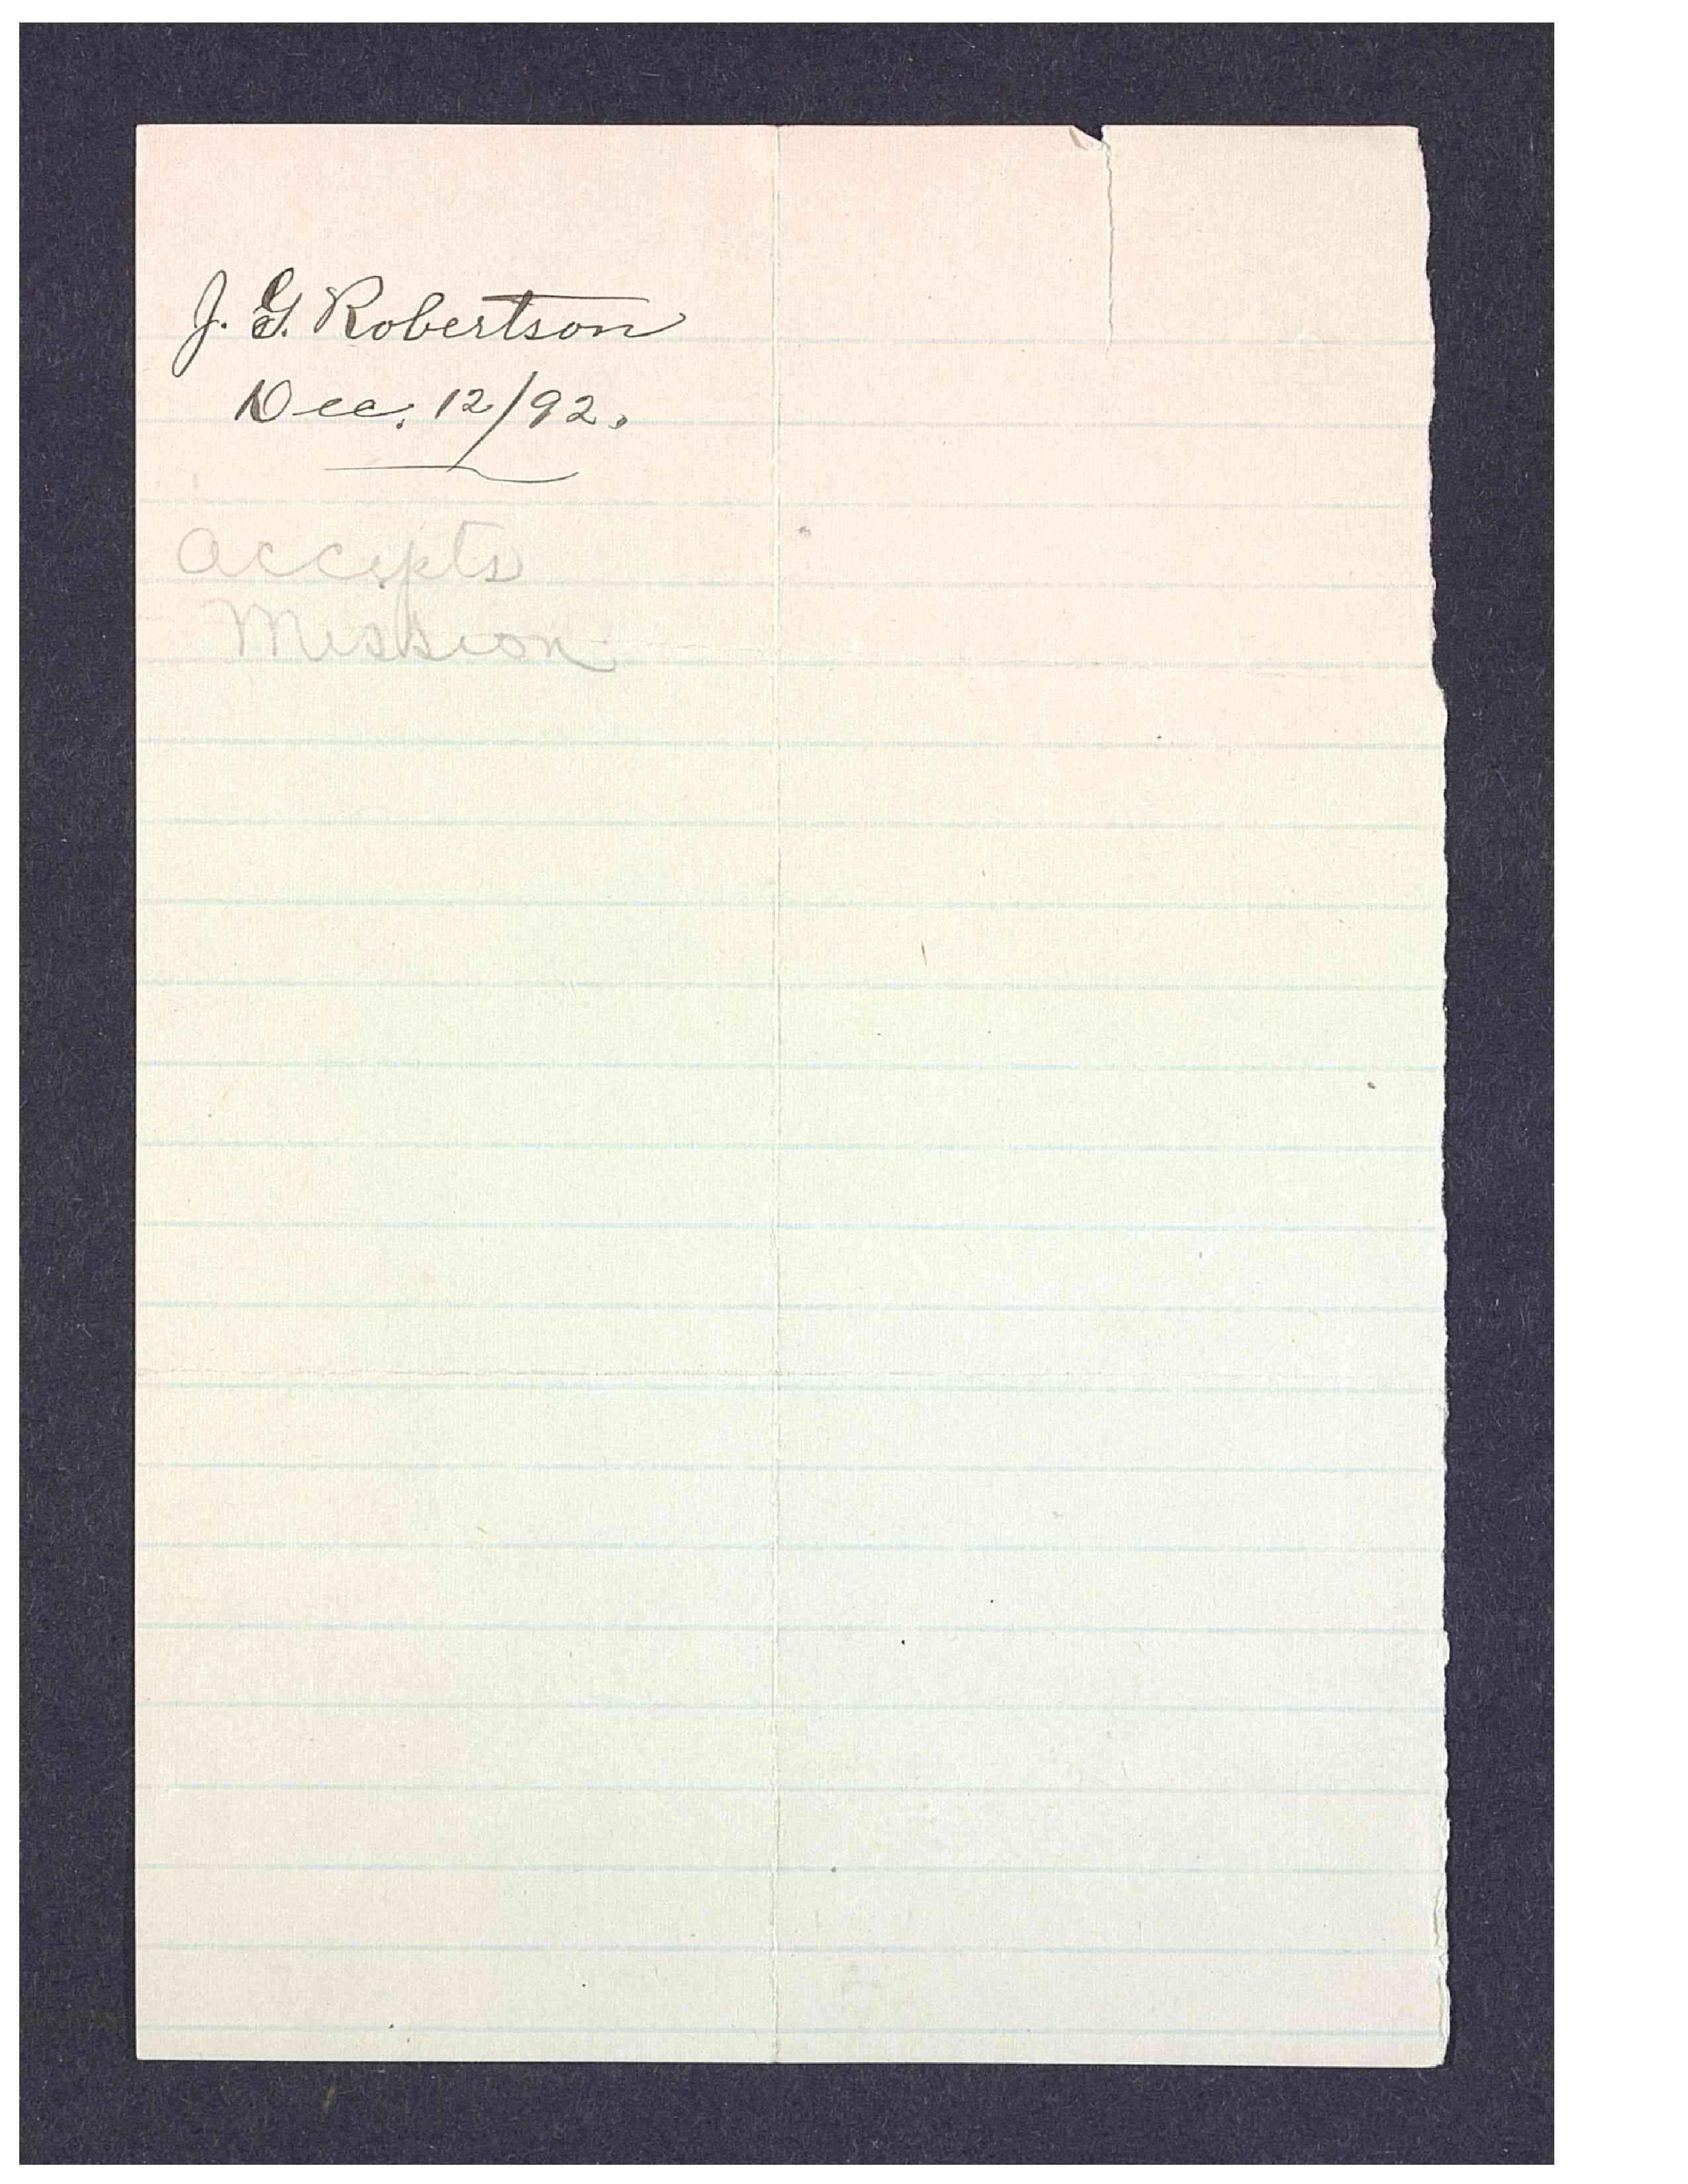 J. G. Robertson
Dec. 12/92.
Accepts
Mission